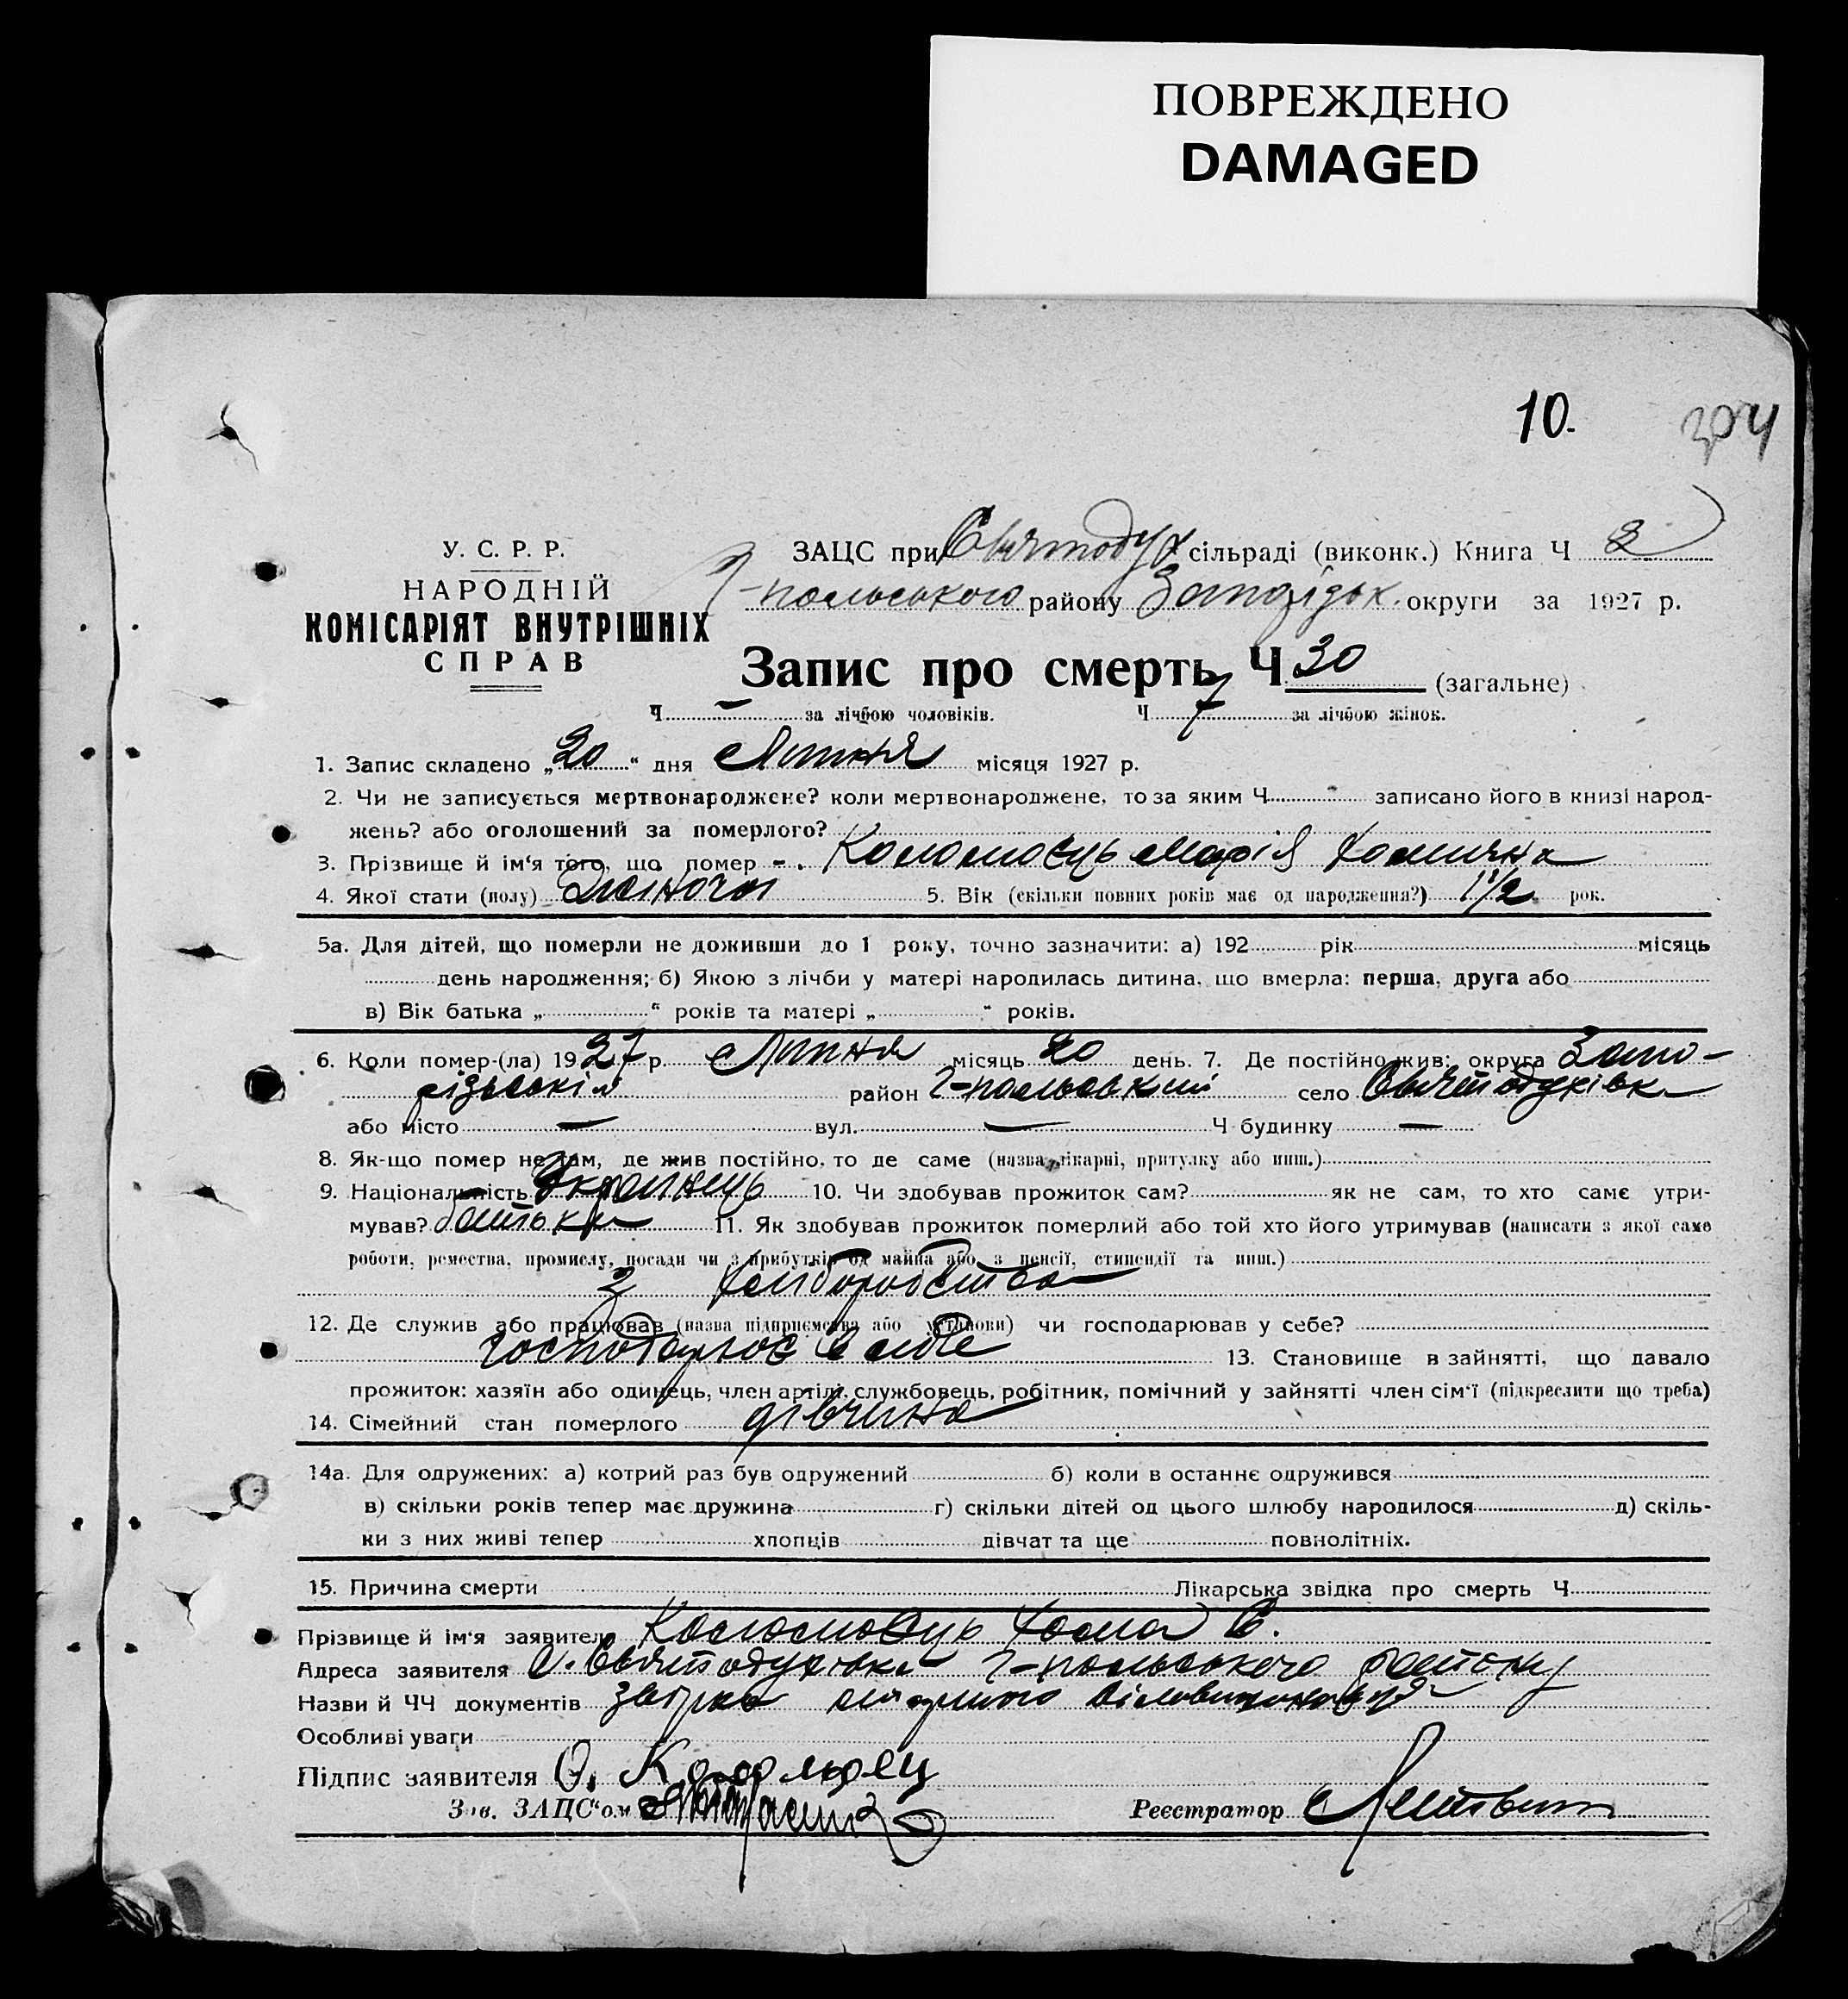 ПОВРЕЖДЕНО
DAMAGED
10.
304
У. С. Р. Р.
НАРОДНІЙ
КОМІСАРІЯТ ВНУТРІШНІХ
СПРАВ
ЗАЦС при Святодух сільраді (виконк.) Книга Ч 3
Г-польського району Запорізьк. округи за 1927 р.
Запис про смерть Ч 30 (загальне)
Ч — за лічбою чоловіків. Ч 7 за лічбою жінок.
1. Запис складено „20“ дня Липня місяця 1927 р.
2. Чи не записується мертвонароджене? коли мертвонароджене, то за яким Ч. записано його в книзі народ-
жень? або оголошений за померлого?
3. Прізвище й ім'я того, що помер - . Коломоєць Марія Хомична
4. Якої стати (полу) Жіночої 5. Вік (скільки повних років має од народження?) 1 1/2 рок.
5а. Для дітей, що померли не доживши до 1 року, точно зазначити: а) 192 рік місяць
день народження; б) Якою з лічби у матері народилась дитина, що вмерла: перша, друга або
в) Вік батька „ “ років та матері „ “ років.
6. Коли помер-(ла) 1927 р. Липня місяць 20 день. 7. Де постійно жив: округа Запо-
різській район Г-польський село Святодухівка
або місто — вул. — Ч будинку —
8. Як-що помер не там, де жив постійно, то де саме (назва лікарні, притулку або инш.)
9. Національність Українець 10. Чи здобував прожиток сам? як не сам, то хто саме утри-
мував? батьки 11. Як здобував прожиток померлий або той хто його утримував (написати з якої саме
роботи, ремества, промислу, посади чи з прибутків од майна або з пенсії, стипендії та инш.)
З хліборобства
12. Де служив або працював (назва підприємства або установи) чи господарював у себе?
господарює в себе 13. Становище в зайнятті, що давало
прожиток: хазяїн або одинець, член артілі, службовець, робітник, помічний у зайнятті член сім'ї (підкреслити що треба)
14. Сімейний стан померлого дівчина
14а. Для одружених: а) котрий раз був одружений б) коли в останнє одружився
в) скільки років тепер має дружина г) скільки дітей од цього шлюбу народилося д) скіль-
ки з них живі тепер хлопців дівчат та ще повнолітніх.
15. Причина смерти Лікарська звідка про смерть Ч
Прізвище й ім'я заявителя Коломоєць Хома С.
Адреса заявителя С. Святодухівка Г-польського району
Назви й ЧЧ документів
Особливі уваги
Підпис заявителя Коломоец
Зав. ЗАЦС'ом Реєстратор Литвин